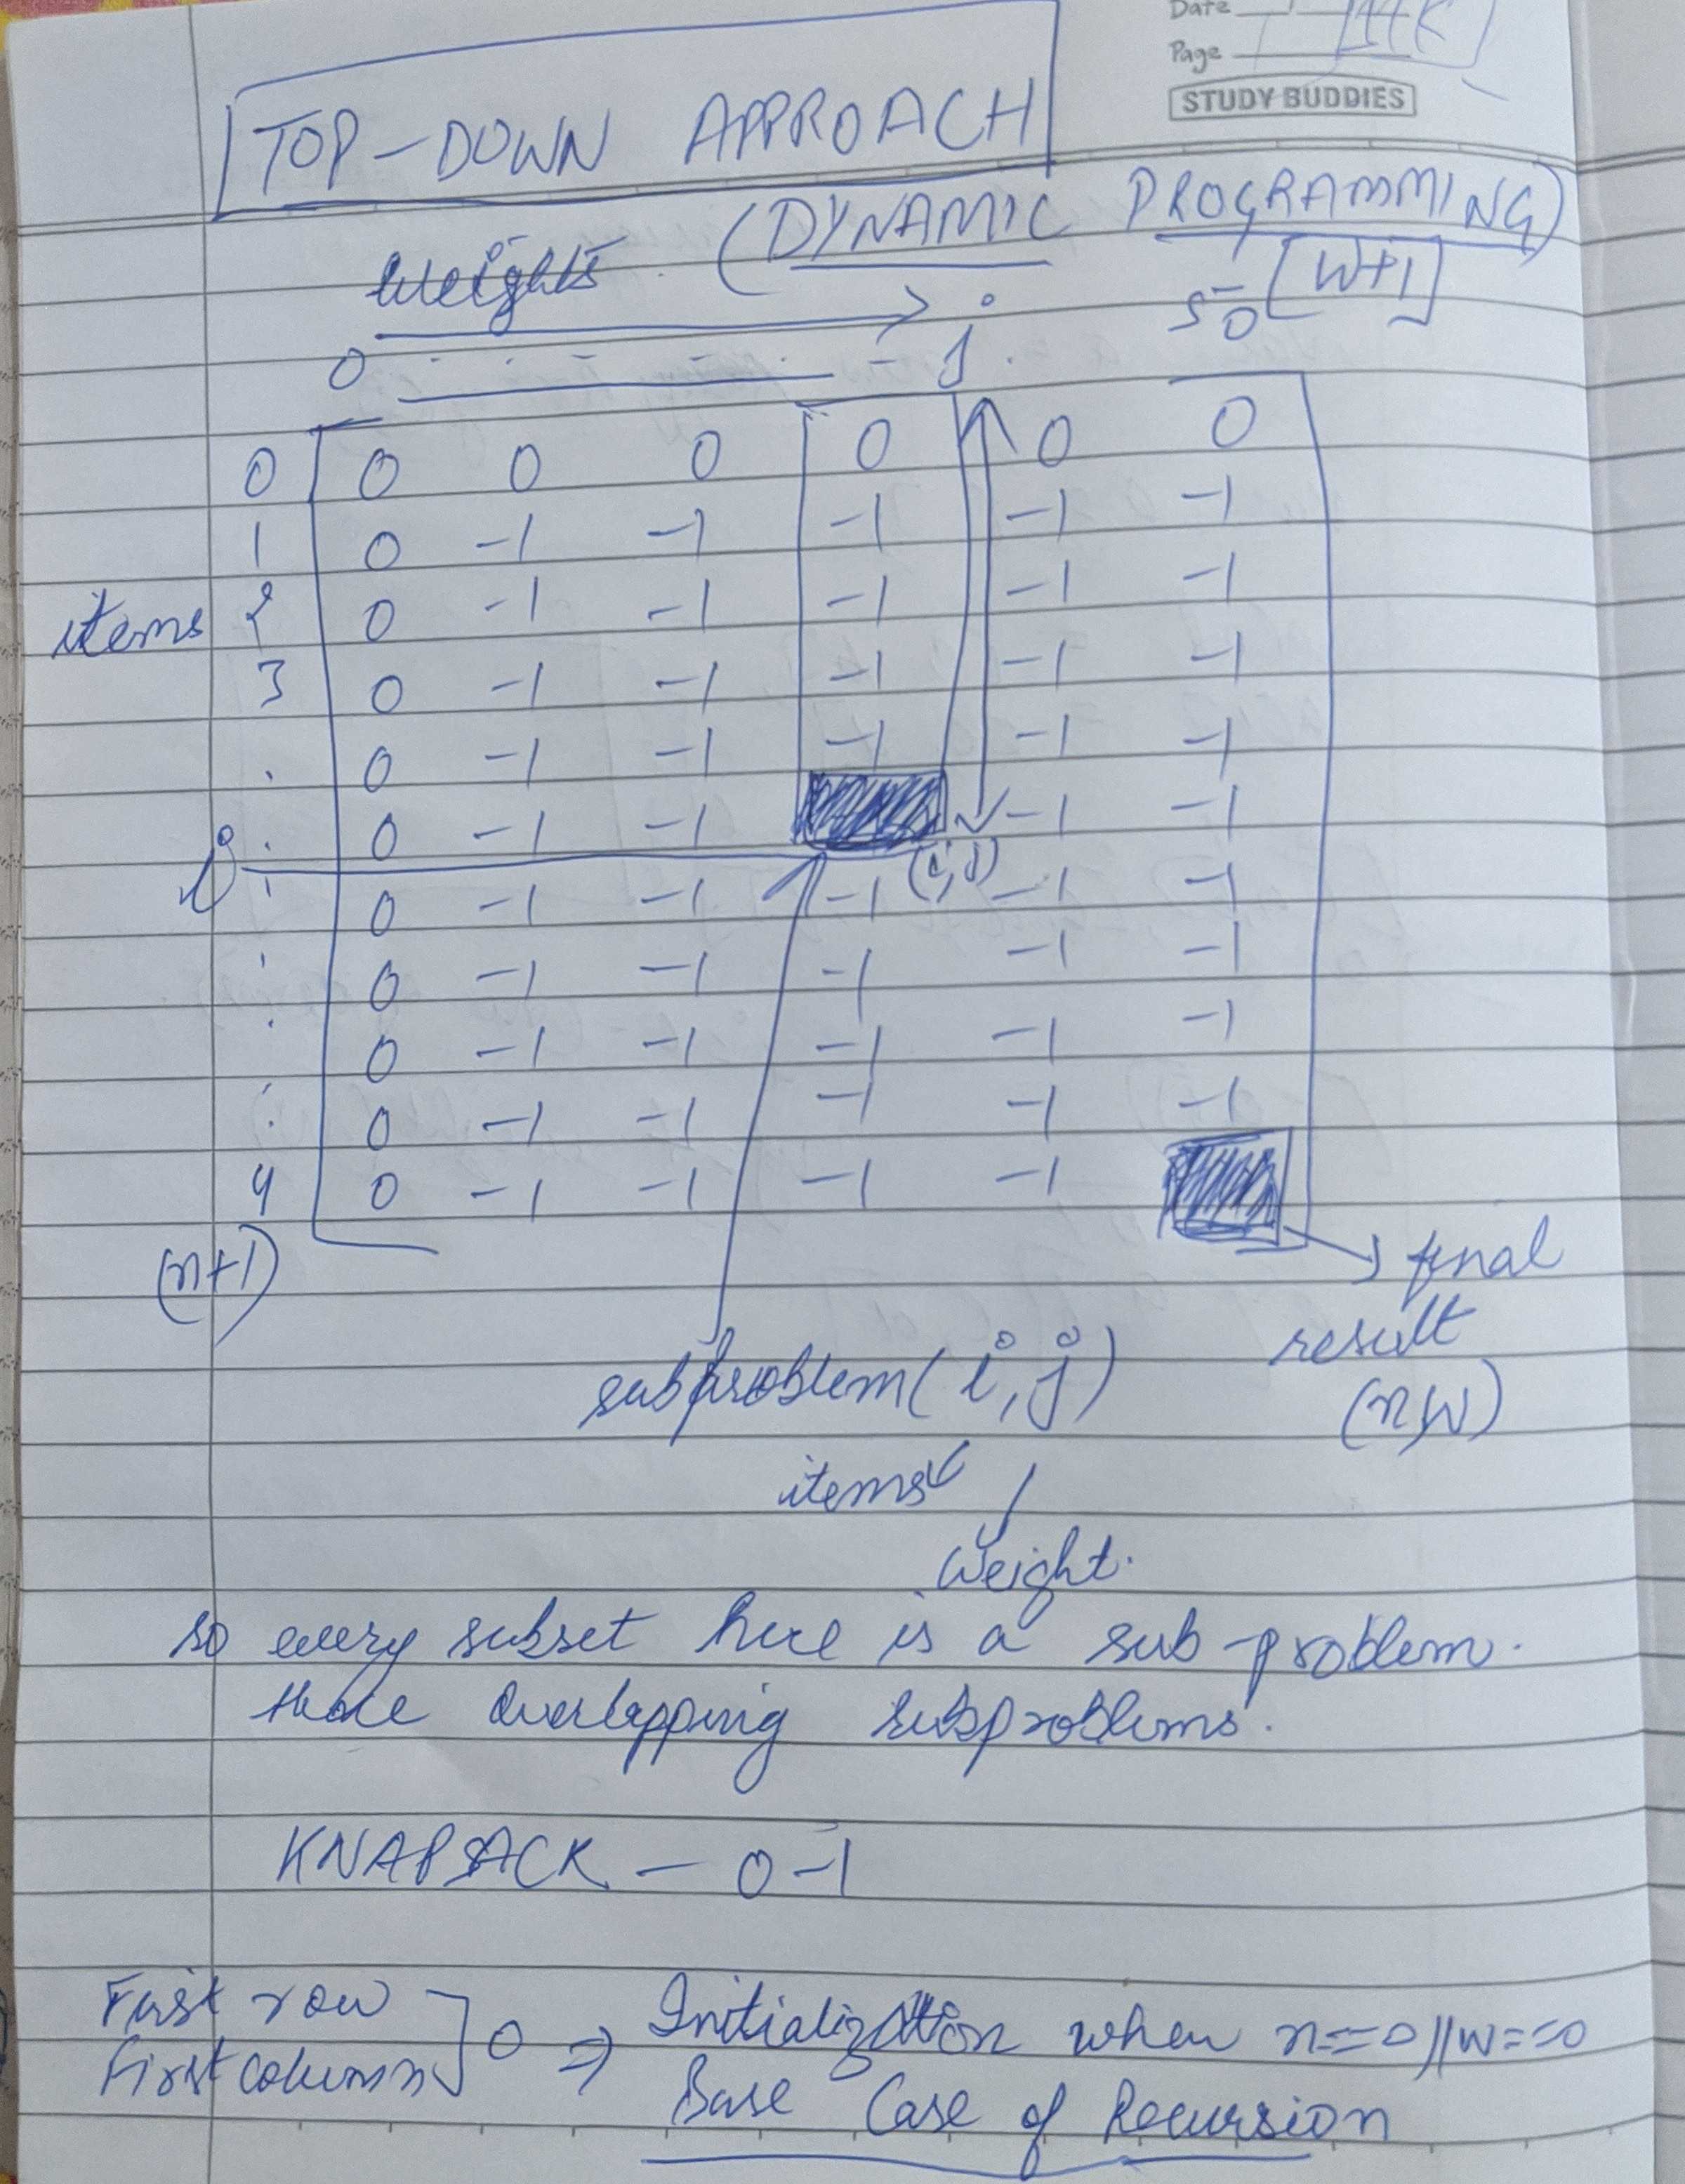 Date
Page
STUDY BUDDIES
TOP-DOWN APPROACH
(DYNAMIC PROGRAMMING)
Weights
50 [W+1]
0 j
0 0 0 0 0 0 0
1 0 -1 -1 -1 -1 -1
items 2 0 -1 -1 -1 -1 -1
3 0 -1 -1 -1 -1 -1
0 -1 -1 -1 -1 -1
i 0 -1 -1 -1 -1
(i,j)
0 -1 -1 -1 -1 -1
0 -1 -1 -1 -1 -1
0 -1 -1 -1 -1 -1
0 -1 -1 -1 -1 -1
4 0 -1 -1 -1 -1
(n+1)
final
result
(n,W)
subproblem(i,j)
items
Weight.
so every subset here is a sub-problem.
Overlapping subproblems.
KNAPSACK - 0-1
First row
First column ] 0 ⇒ Initialization when n==0||w==0
Base Case of Recursion